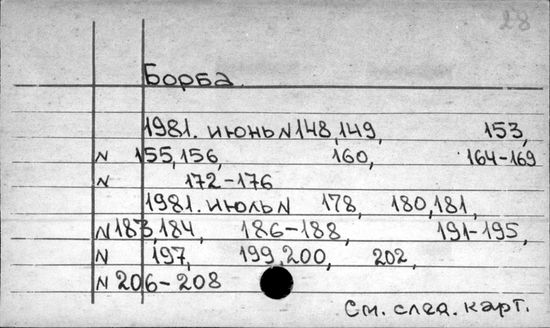 28
Борба
1981. июнь N148,149, 153,
N 155,156, 160, 164-169
N 172-176
1981. июль N 178, 180,181,
N183,184, 186-188, 191-195,
N 197, 199,200, 202,
N 206-208
См. след. карт.